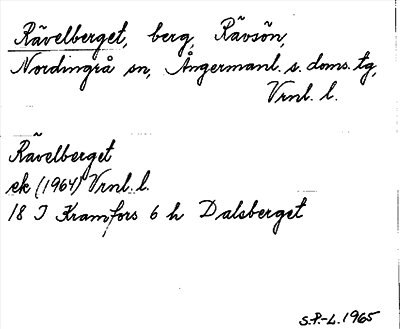 Rävelberget, berg, Rävsön,
Nordingrå sn, Ångermanl. s. doms. tg,
Vrnl. l.
Rävelberget
ek (1964) Vrnl. l.
18 I Kramfors 6 h Dalsberget
S.P.-L. 1965